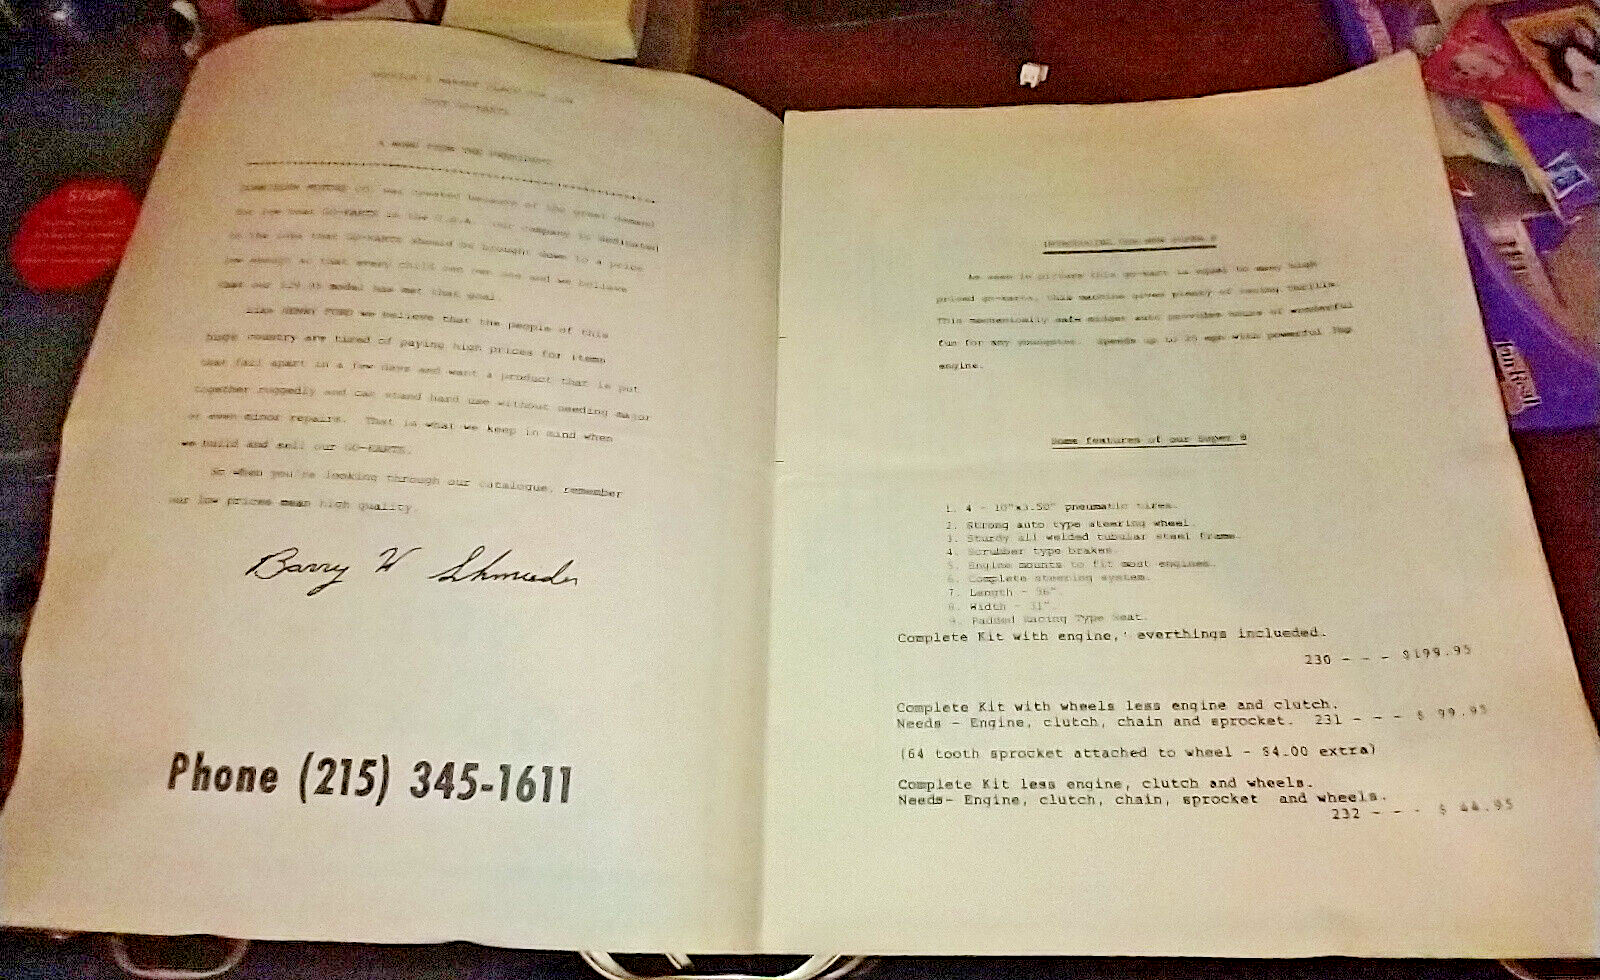 A WORD FROM THE PRESIDENT
MOTORS CO. was created because of the great demand
for low cost GO-KARTS in the U.S.A. Our company is dedicated
to the idea that GO-KARTS should be brought down to a price
low enough so that every child can own one and we believe
that our model has met that goal.
Like HENRY FORD we believe that the people of this
huge country are tired of paying high prices for items
that fall apart in a few days and want a product that is put
together ruggedly and can stand hard use without needing major
or even minor repairs. That is what we keep in mind when
we build and sell our GO-KARTS.
So when you're looking through our catalogue, remember
our low prices mean high quality.
Barry W
Phone (215) 345-1611
INTRODUCING OUR NEW SUPER 8
As seen in picture this go-kart is equal to many high
priced go-karts, this machine gives plenty of racing thrills.
This mechanically safe midget auto provides hours of wonderful
fun for any youngster. Speeds up to 25 mph with powerful 3hp
engine.
Some features of our Super 8
1. 4 - 10"x3.50" pneumatic tires.
2. Strong auto type steering wheel.
3. Sturdy all welded tubular steel frame.
4. Scrubber type brakes.
5. Engine mounts to fit most engines.
6. Complete steering system.
7. Length - 56"
8. Width - 31"
9. Padded Racing Type Seat.
Complete Kit with engine, everthings inclueded.
230 - - - $199.95
Complete Kit with wheels less engine and clutch.
Needs - Engine, clutch, chain and sprocket. 231 - - - $ 99.95
(64 tooth sprocket attached to wheel - $4.00 extra)
Complete Kit less engine, clutch and wheels.
Needs- Engine, clutch, chain, sprocket and wheels.
232 - - - $ 44.95
STOP!